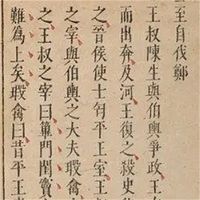 公至自伐鄭
王叔陳生與伯輿爭政王
而出奔及河王復之殺史
之晉侯使士匄平王室王
之宰與伯輿之大夫瑕禽
之王叔之宰曰篳門閨竇
難為上矣瑕禽曰昔平王